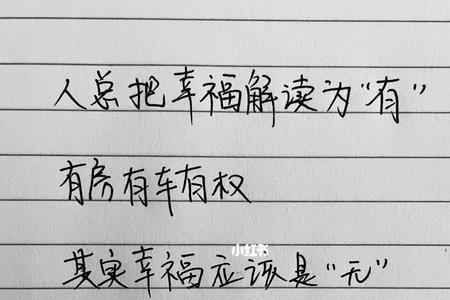 人总把幸福解读为“有”
有房有车有权
小红书
其实幸福应该是“无”